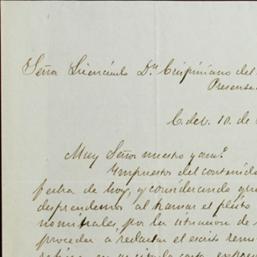 Señor Licenciado Dn. Crispiniano del
Presente.
C. de V. 10. de
Muy Señor nuestro y am.º
Impuestos del contenido
fecha de hoy, y considerando que
desprendemos al tomar el pleito
nominales, por la situacion de
proceder a redactar el escrito